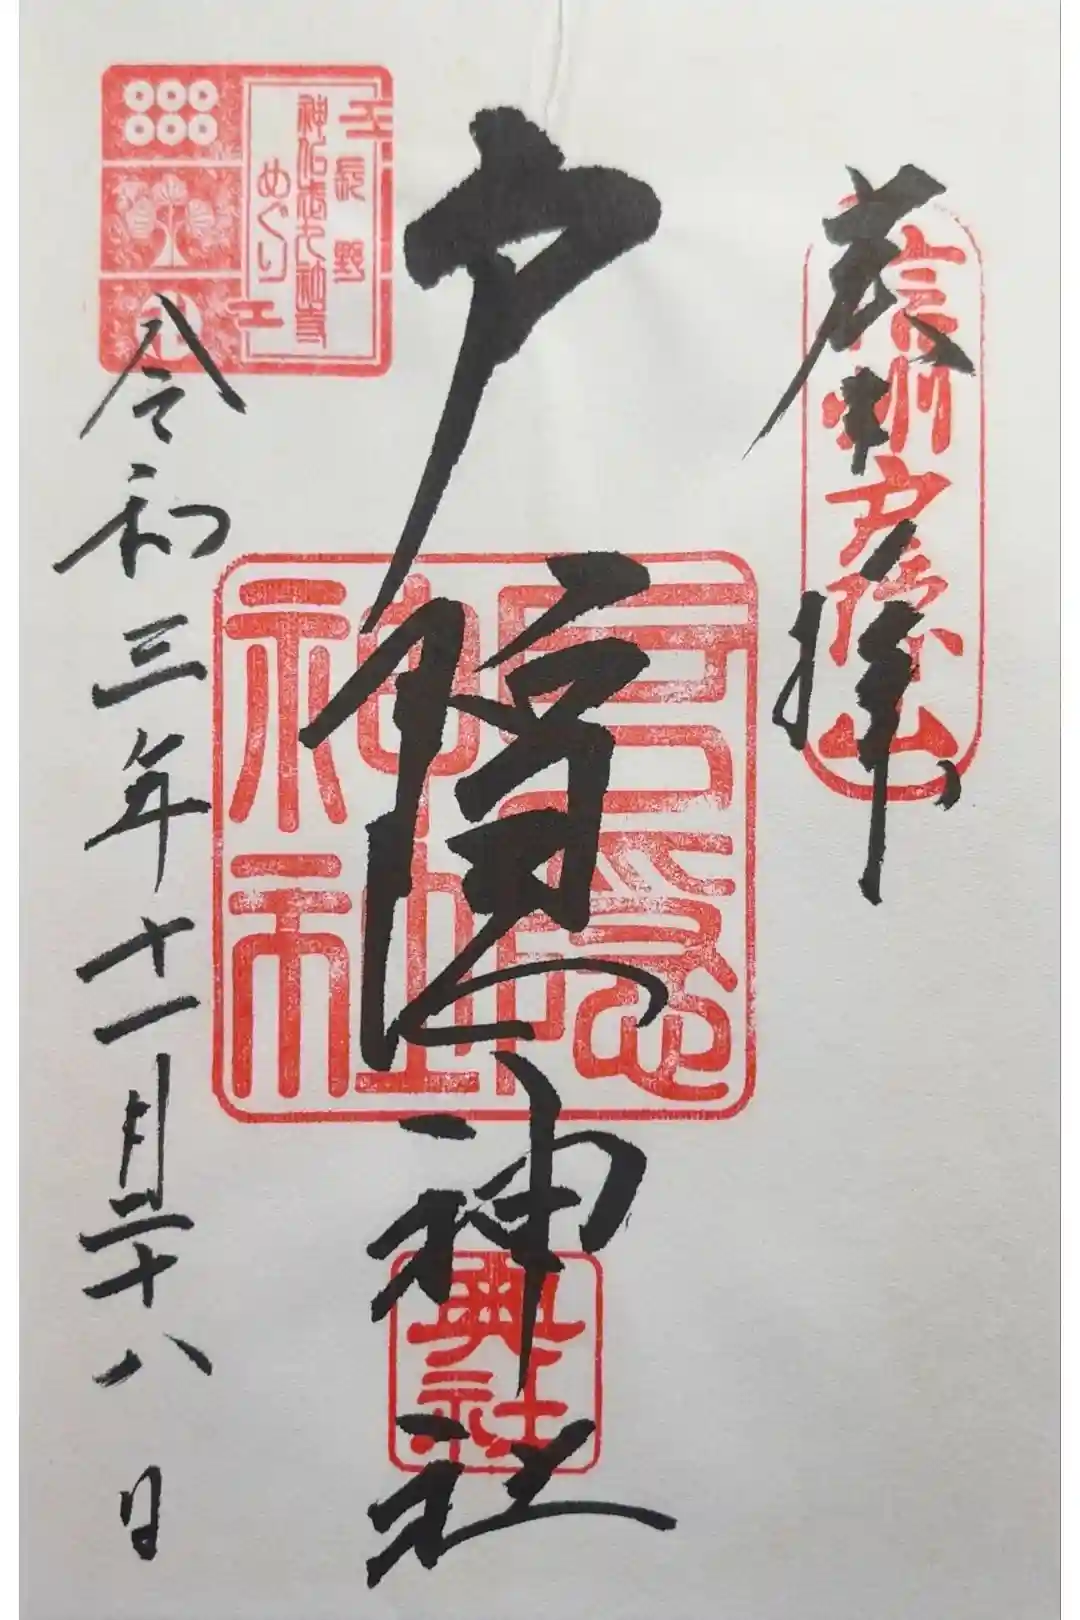 奉拝
信州戸隠山
戸隠神社
戸隠
神社
奥社
長野
神仏真九社寺
めぐり
令和三年十一月二十八日